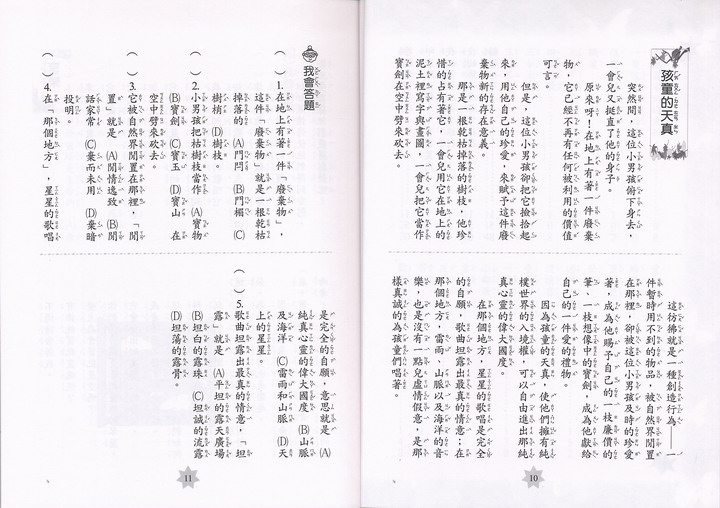 孩童的天真
突然間，這位小男孩俯下身去，
一會兒又挺直了他的身子。
原來呀！在地上有著一件廢棄
物，它已經不再有任何被利用的價值
可言。
但是，這位小男孩卻把它撿拾起
來，用他自己的珍愛，來賦予這件廢
棄物新的存在意義。
那是一根乾枯掉落的樹枝，他珍
惜的占有著它，一會兒用它在地上的
泥土裡寫字與畫圖，一會兒把它當作
寶劍在空中劈來砍去。
這彷彿就是一種創造行為——一
件暫時用不到的物品，被自然界閒置
在那裡，卻被這位小男孩及時的珍愛
著，成為他賜予自己的一枝廉價的
筆、一枝想像中的寶劍，成為他獻給
自己的一件愛的禮物。
因為孩童的天真，使他們擁有純
樸世界的入境權，可以自由進出那純
真心靈的偉大國度。
在那個地方，星星的歌唱是完全
的自願，歌曲坦露出最真的情意；在
那個地方，雷雨、山脈以及海洋的音
樂，也是沒有一點兒虛情假意，是那
樣真誠的為孩童們唱著。
10
我會答題
（ ）1.在地上有著一件「廢棄物」，
這件「廢棄物」就是一根乾枯
掉落的 (A)門閂 (B)門楣 (C)
樹梢 (D)樹枝。
（ ）2.小男孩把枯樹枝當作 (A)寶物
(B)寶劍 (C)寶玉 (D)寶山 在
空中劈來砍去。
（ ）3.它被自然界閒置在那裡，「閒
置」就是 (A)閒情逸致 (B)閒
話家常 (C)棄而未用 (D)棄暗
投明。
（ ）4.在「那個地方」，星星的歌唱
是完全的自願，意思就是 (A)
純真心靈的偉大國度 (B)山脈
及海洋 (C)雷雨和山脈 (D)天
上的星星。
（ ）5.歌曲坦露出最真的情意，「坦
露」就是 (A)平坦的露天廣場
(B)坦白的露珠 (C)坦誠的流露
(D)坦蕩的露骨。
11